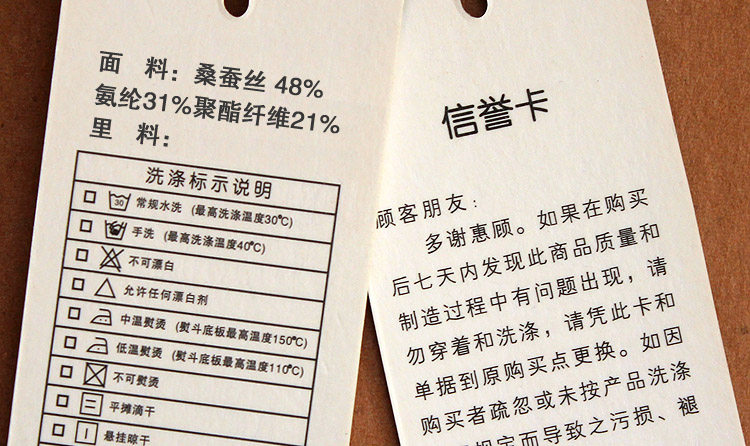 面 料：桑蚕丝 48%
氨纶31%聚酯纤维21%
里 料：
洗涤标示说明
30 常规水洗 (最高洗涤温度30℃)
手洗 (最高洗涤温度40℃)
不可漂白
允许任何漂白剂
中温熨烫 (熨斗底板最高温度150℃)
低温熨烫 (熨斗底板最高温度110℃)
不可熨烫
平摊滴干
悬挂晾干
信誉卡
顾客朋友：
多谢惠顾。如果在购买
后七天内发现此商品质量和
制造过程中有问题出现，请
勿穿着和洗涤，请凭此卡和
单据到原购买点更换。如因
购买者疏忽或未按产品洗涤
规定而导致之污损、褪